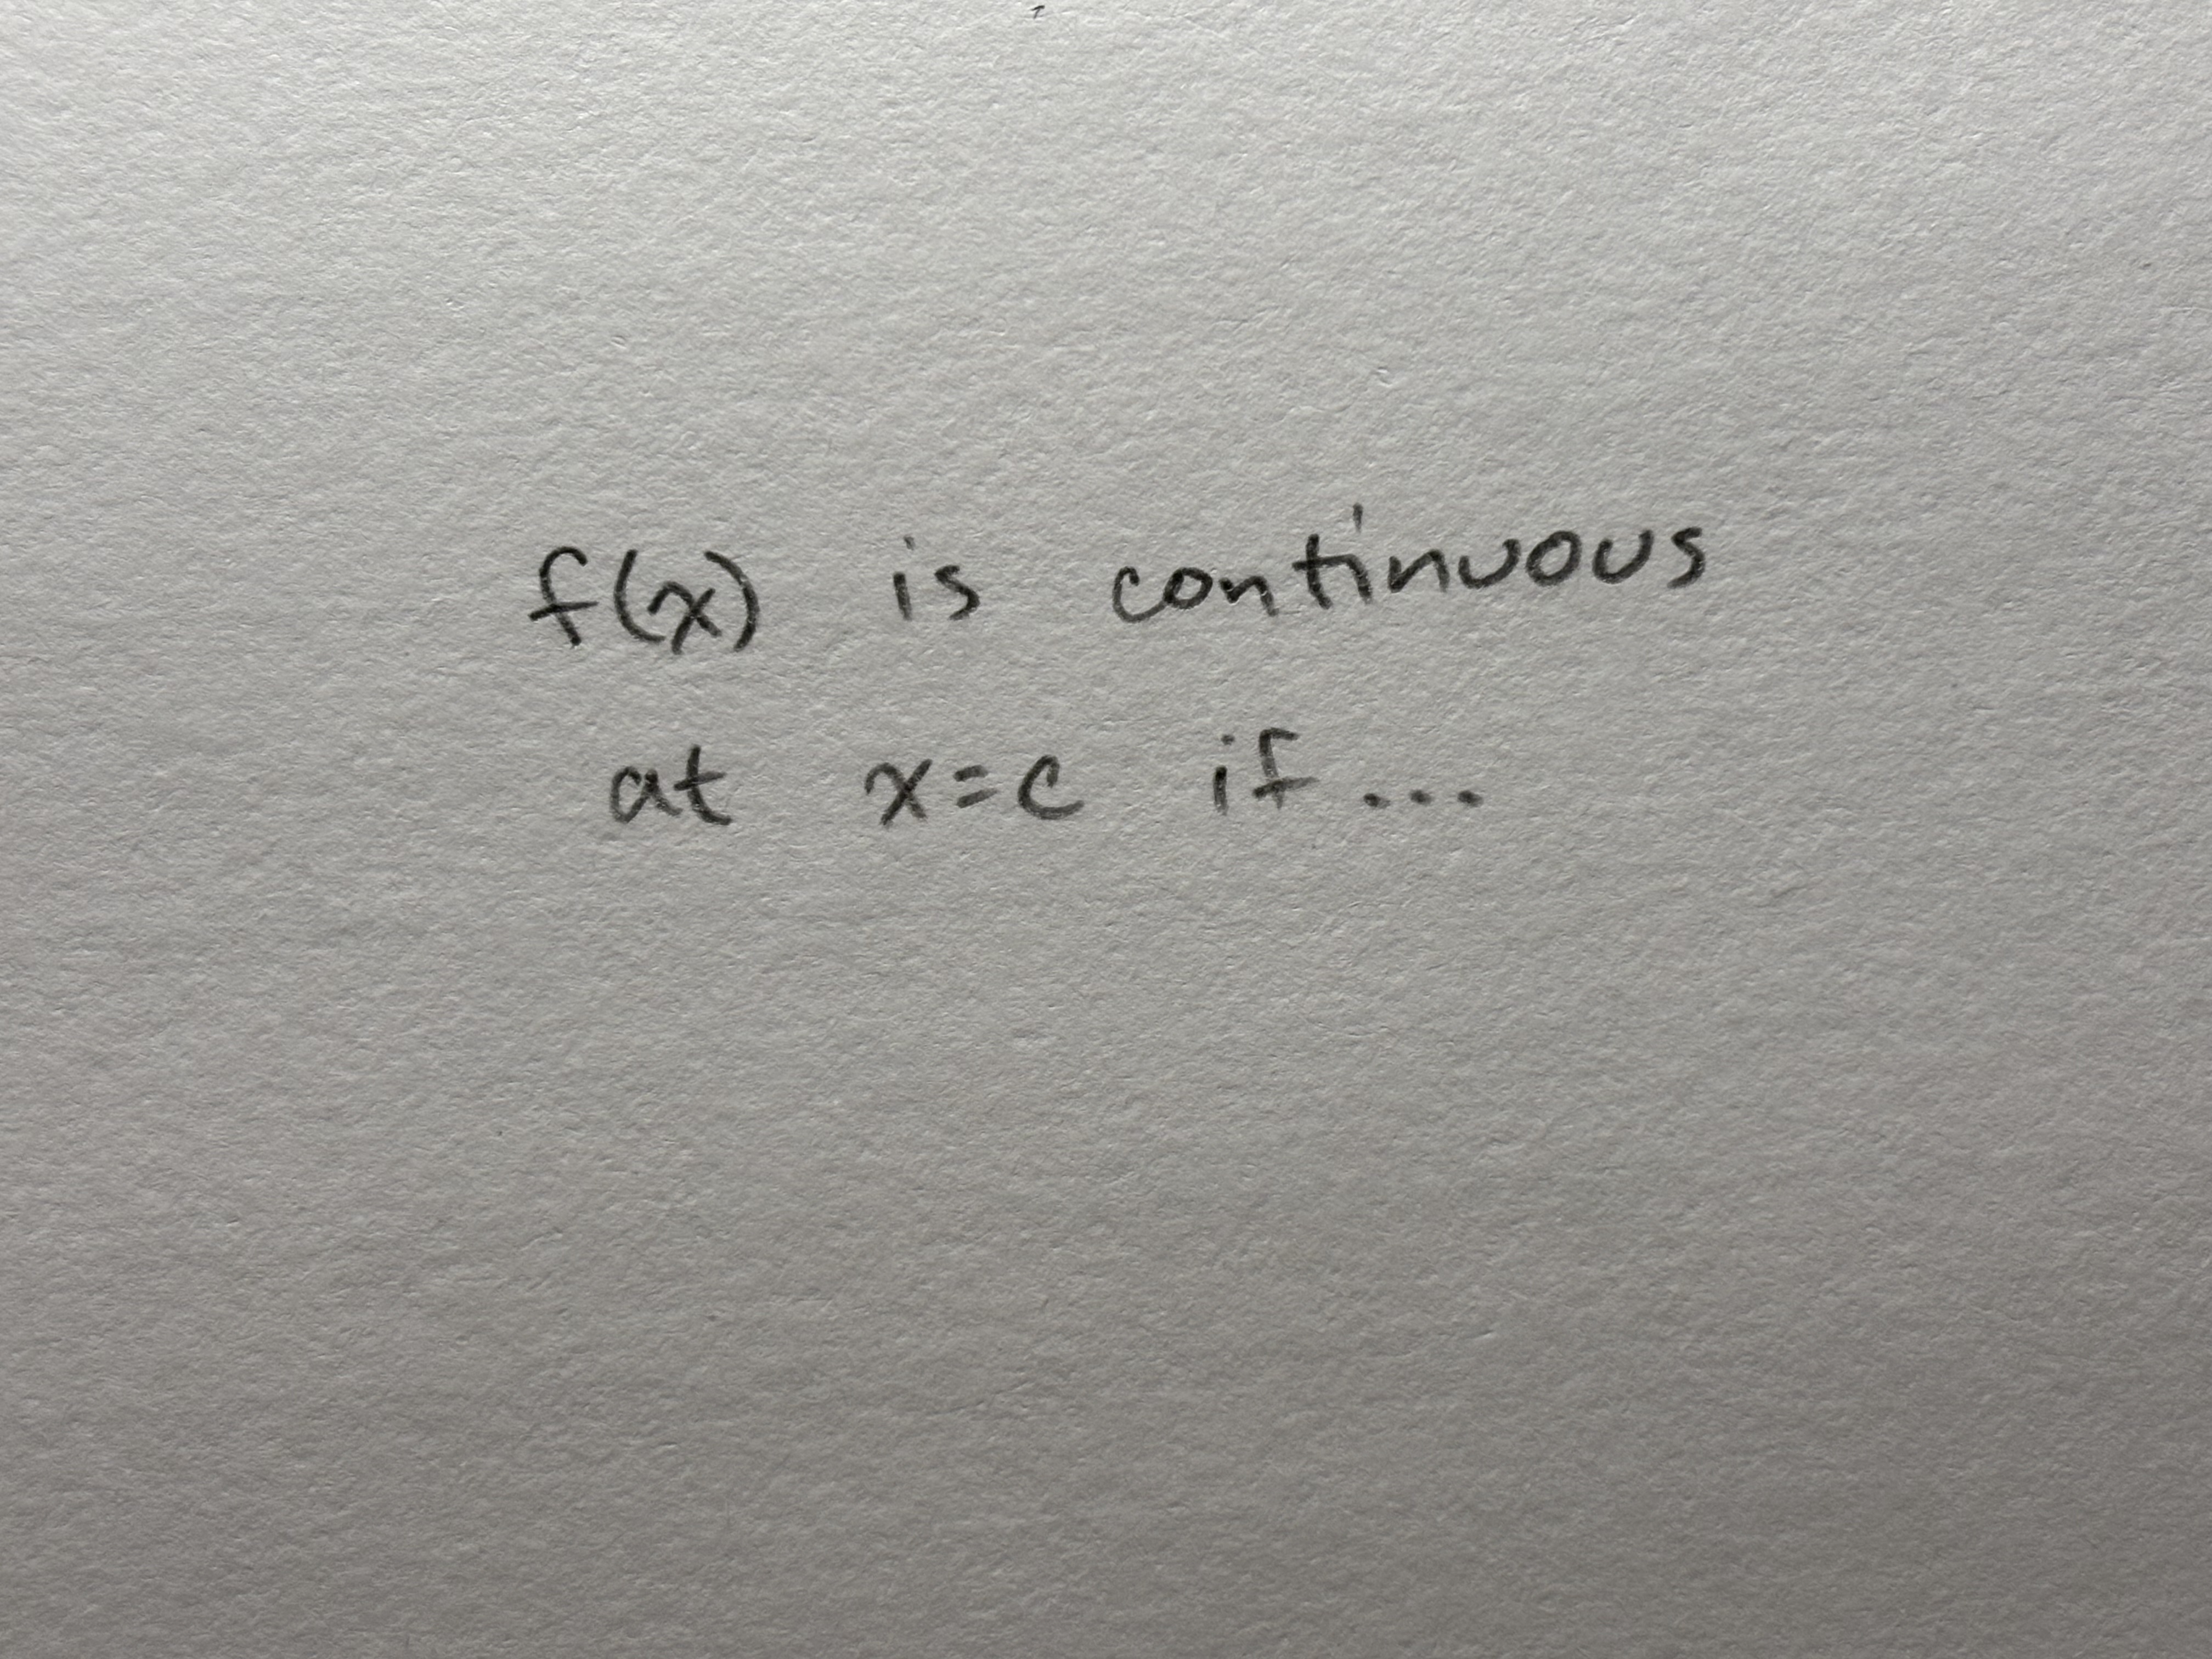 f(x) is continuous
at x=c if...